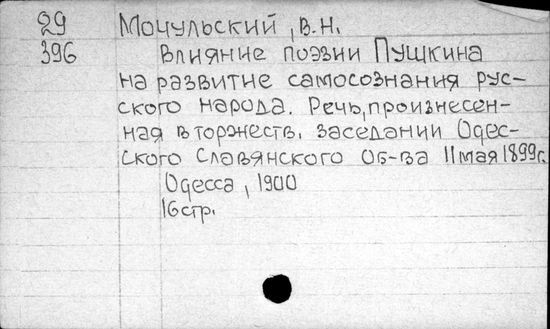 29 Мочульский, В.Н.
396 Влияние поэзии Пушкина
на развитие самосознания рус-
ского народа. Речь, произнесен-
ная в торжеств. заседании Одес-
ского Славянского Об-ва 11 мая 1899 г.
Одесса, 1900
16 стр.